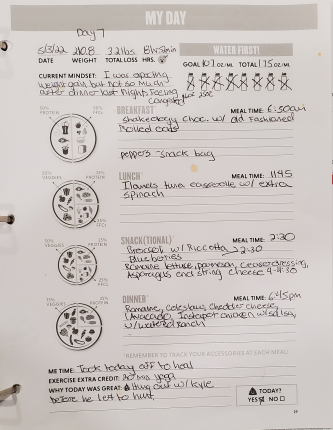 MY DAY
Day 7
5/3/22 210.8 3.2lbs 8hr51min
DATE WEIGHT TOTAL LOSS HRS.
WATER FIRST!
GOAL 101 OZ/ML TOTAL 115 OZ/ML
CURRENT MINDSET: I was expecting
weight gain but not so much
after dinner last night. Feeling
50% PROTEIN
BREAKFAST
MEAL TIME: 6:50am
Shakeology Choc. w/ Old Fashioned
Rolled Oats
peppers - snack bag
50% VEGGIES
25% PROTEIN
25% FFCs
LUNCH
MEAL TIME: 1145
tuna casserole w/ extra
spinach
SNACK(TIONAL)
MEAL TIME: 2:20
Broccoli w/ Ricotta 2:30
Blueberries
Romaine lettuce, parmesan, Ceasar dressing,
Asparagus and string cheese 4-4:30
50% VEGGIES
25% FFCs
DINNER
MEAL TIME: 6:45pm
Romaine, coleslaw, cheddar cheese,
Avocado, Instapot chicken w/ salsa,
w/ ranch
*REMEMBER TO TRACK YOUR ACCESSORIES AT EACH MEAL!
ME TIME: Took today off to heal
EXERCISE EXTRA CREDIT: 20 min yoga
WHY TODAY WAS GREAT: hung out w/ Kyle
before he left to hunt
TODAY?
YES NO